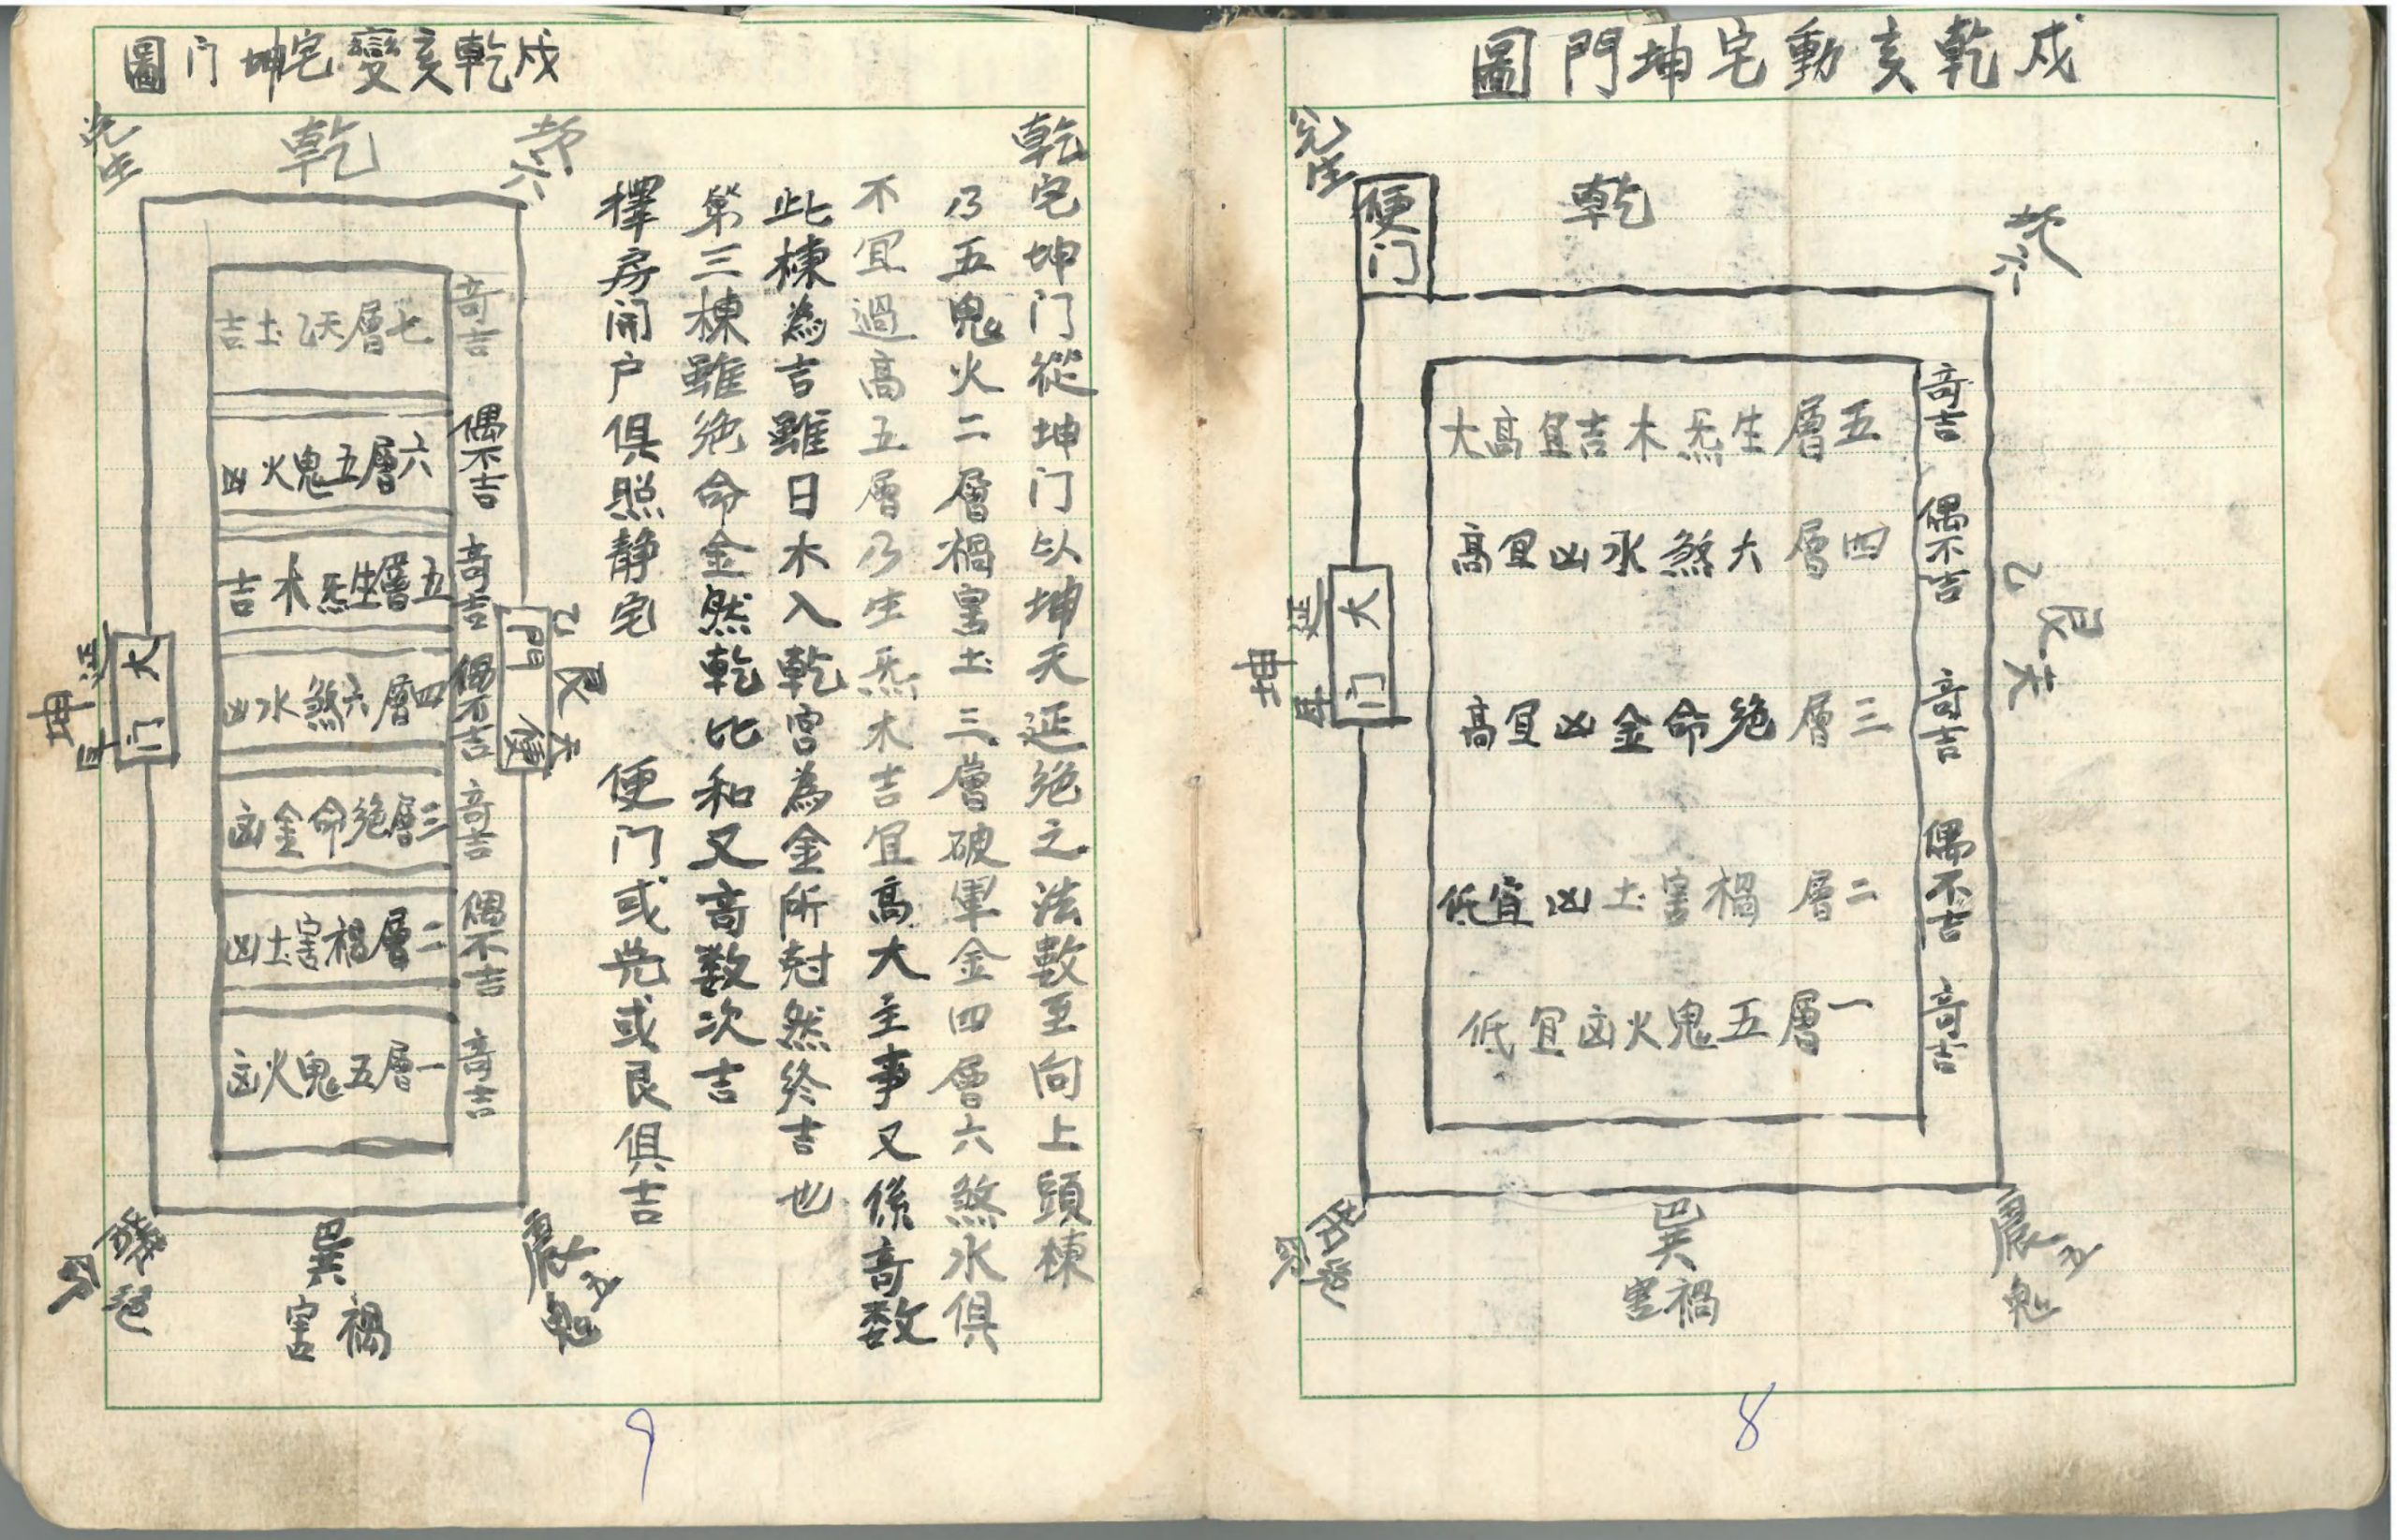 戍乾亥動宅坤門圖
兌生
乾
坎六
便门
五層生炁木吉宜高大
奇吉
四層六煞水凶宜高
偶不吉
三層絶命金凶宜高
奇吉
二層禍害土凶宜低
偶不吉
一層五鬼火凶宜低
奇吉
大门
坤
延年
艮
天乙
巽
禍害
震五鬼
8
戍乾亥變宅坤门圖
乾宅坤门從坤门以坤天延絶之法數至向上頭棟
乃五鬼火二層禍害土三層破軍金四層六煞水俱
不宜過高五層乃生炁木吉宜高大主事又係奇数
此棟為吉雖日木入乾宮為金所尅然終吉也
第三棟雖絶命金然乾比和又奇数次吉
擇房開户俱照靜宅 便门或兌或艮俱吉
兌生
乾
坎六
七層天乙土吉
奇吉
六層五鬼火凶
偶不吉
五層生炁木吉
奇吉
四層六煞水凶
偶不吉
三層絶命金凶
奇吉
二層禍害土凶
偶不吉
一層五鬼火凶
奇吉
大门
坤
延年
便門
艮
天乙
巽
禍害
震五鬼
9